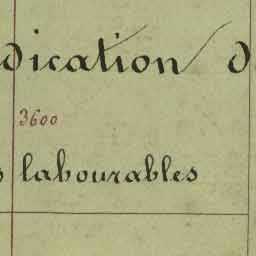 dication d
3600
s labourables